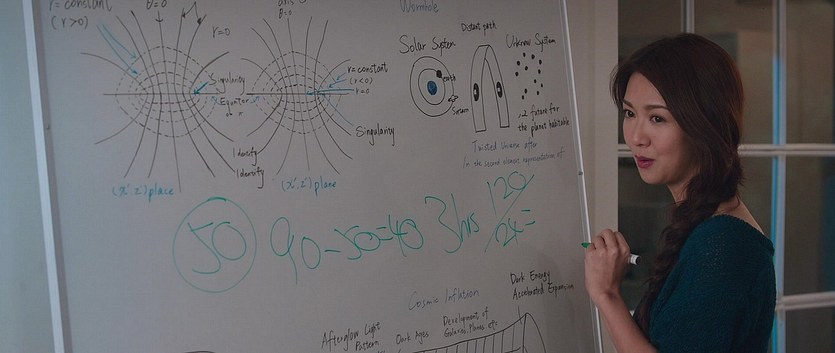 r = constant
(r > 0)
θ = 0
r = 0
θ = 0
Wormhole
Solar System
Distant path
Unknown System
earth
Saturn
Singularity
Equator
r = constant
(r < 0)
r = 0
Singularity
Identify
Identify
(x', z') place
(x', z') plane
future for
the planet habitable
in the second element, representation of
50 90-50=40 3hrs 120/24=
Cosmic Inflation
Dark Energy
Accelerated Expansion
Afterglow Light
Pattern
Dark Ages
Development of
Galaxies, Planes, etc